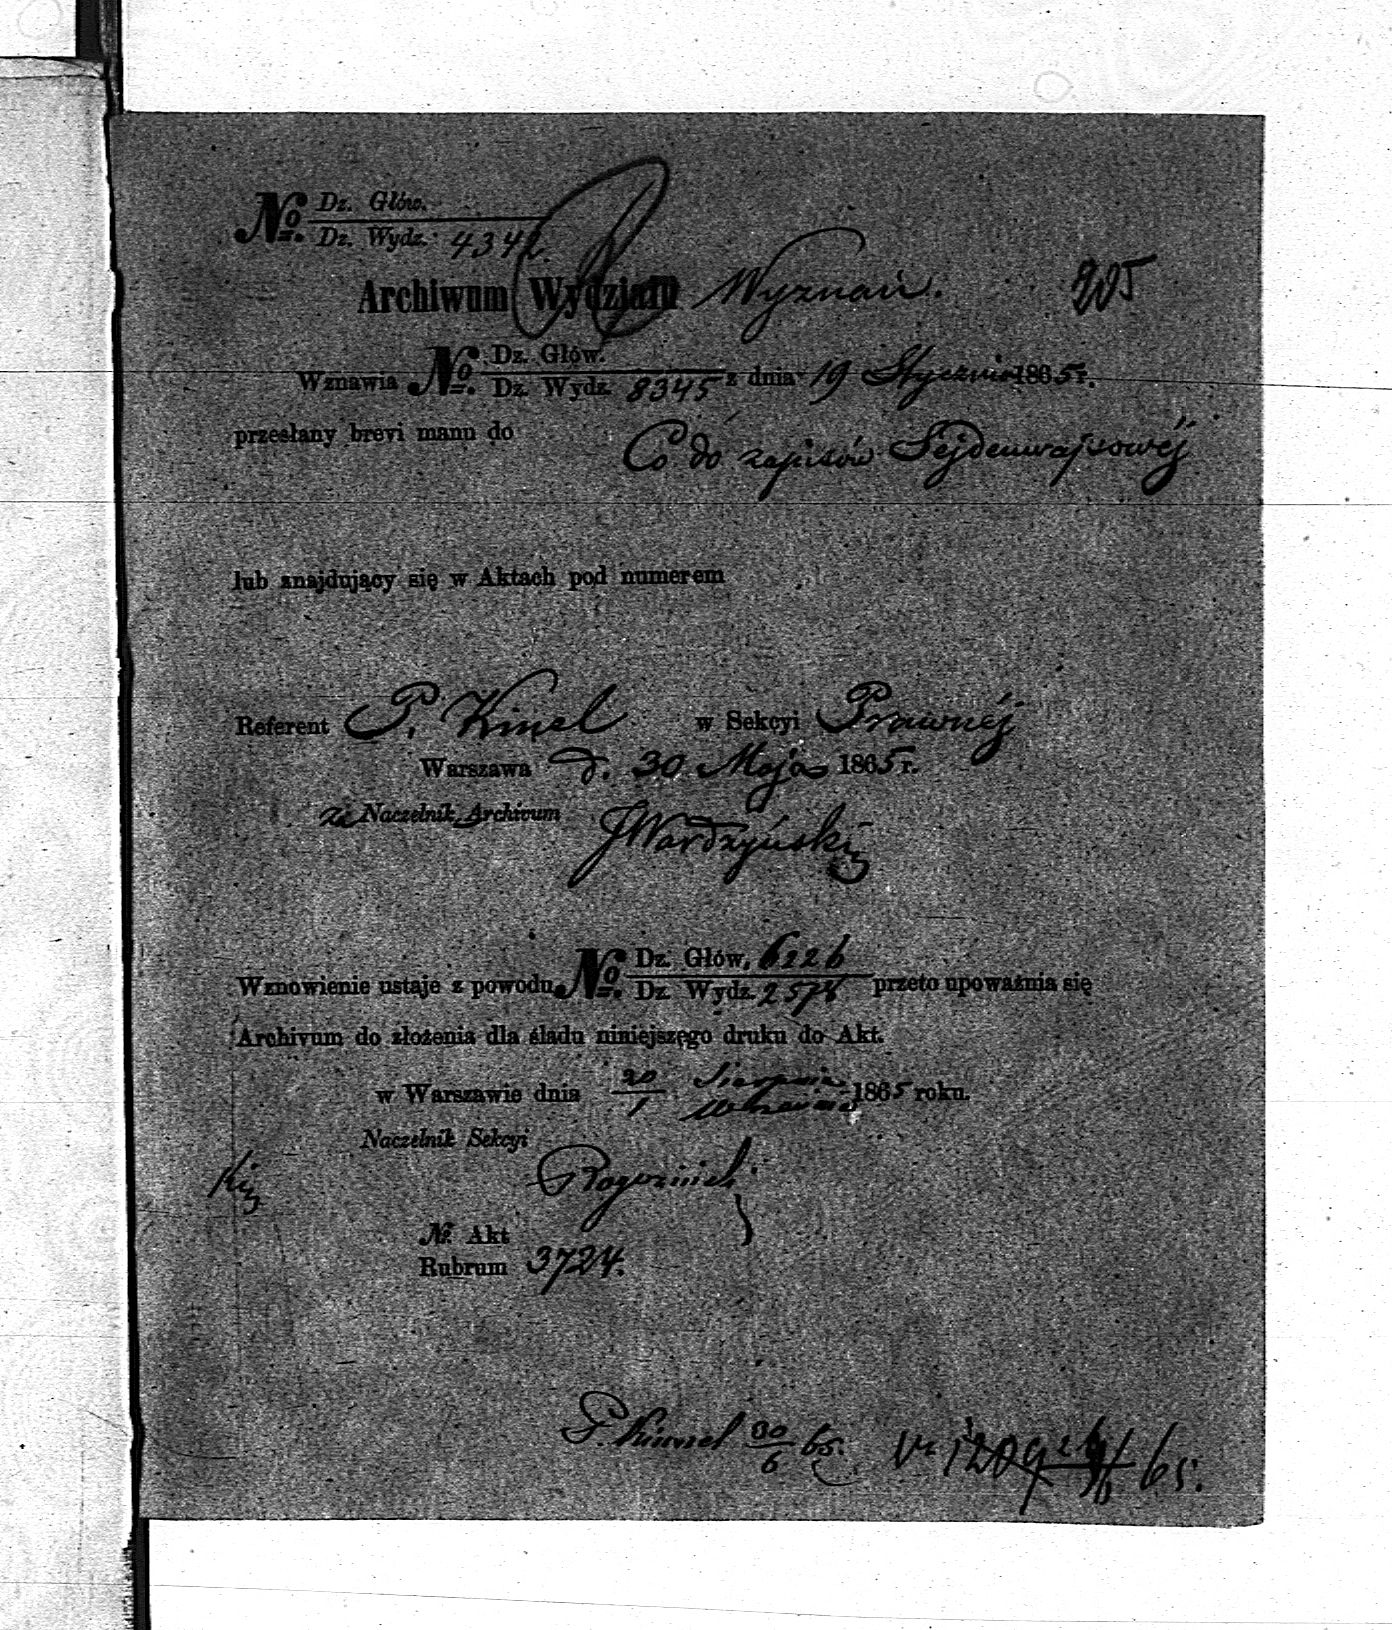 №. Dz. Głów.
Dz. Wydz. 434
Archiwum Wydziału Wyznań. 205
Wznawia №. Dz. Głów.
Dz. Wydz. 8345 z dnia 19 Stycznia 1865 r.
przesłany brevi manu do Co do zapisów Sejdenwajsowéj
lub znajdujący się w Aktach pod numerem
Referent P. Kinel w Sekcyi Prawnéj
Warszawa d. 30 Maja 1865 r.
za Naczelnik Archivum JWardzyński
Wznowienie ustaje z powodu №. Dz. Głów. 6226
Dz. Wydz. 2578 przeto upoważnia się
Archivum do złożenia dla śladu niniejszego druku do Akt.
w Warszawie dnia 20/1 Sierpnia/Września 1865 roku.
Naczelnik Sekcyi
№ Akt
Rubrum 3724.
P. Kimel 30/6 65.
65.